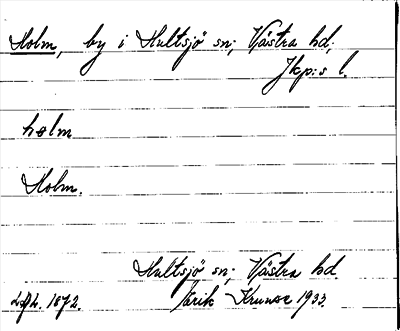 Holm, by i Hultsjö sn; Västra hd;
Jkp:s l.
holm
Holm.
Hultsjö sn; Västra hd.
1872. Erik 1933.